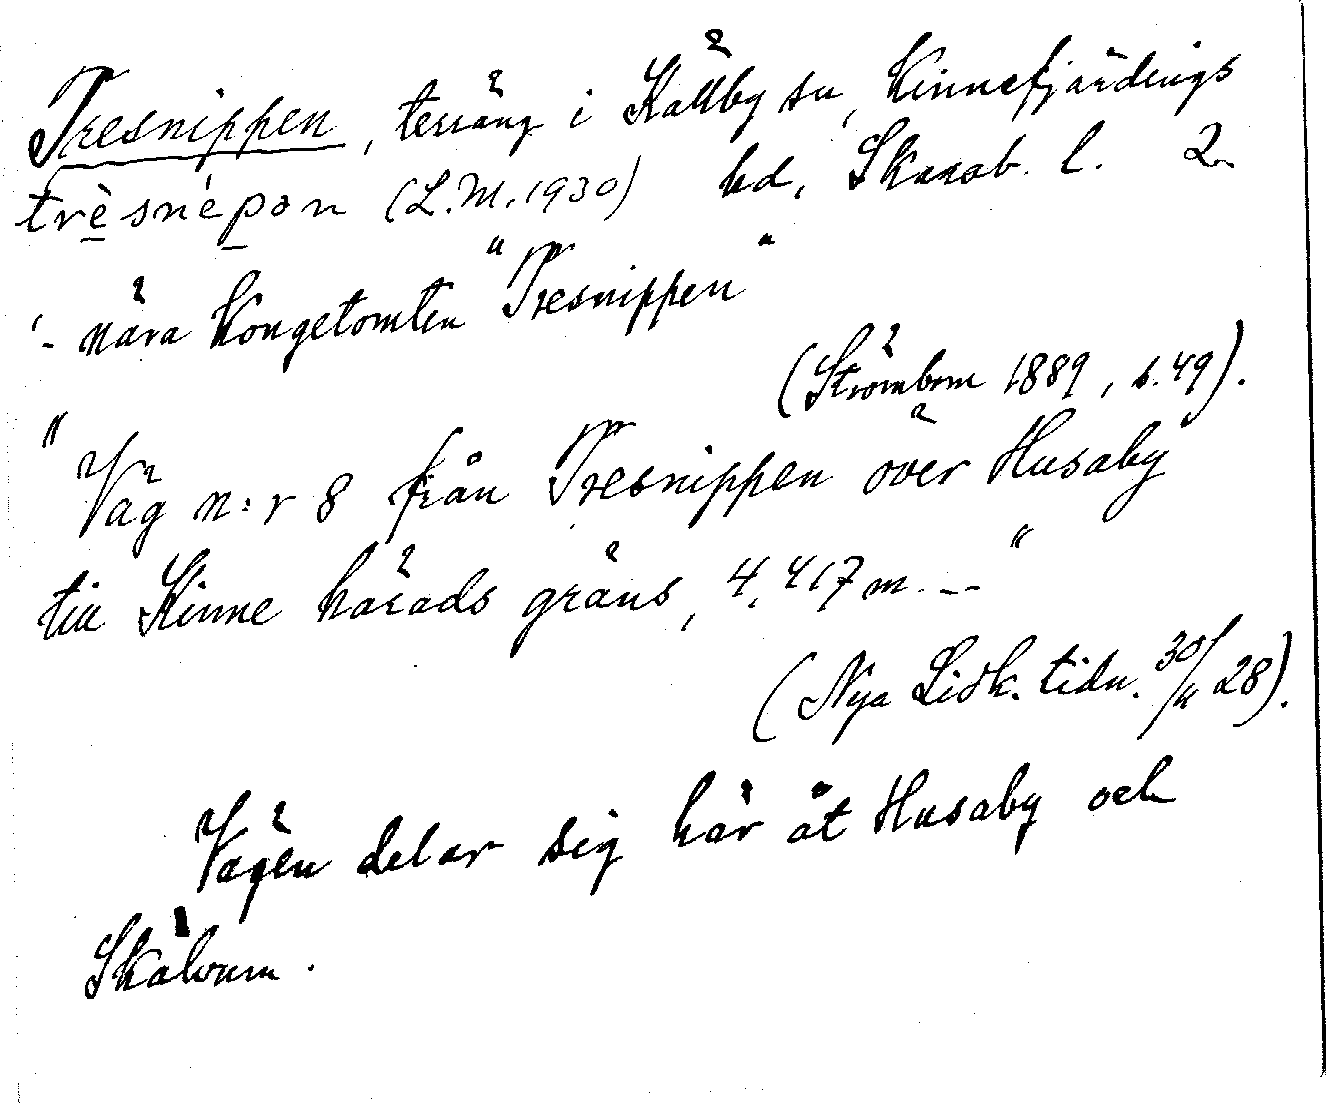 Tresnippen, terräng i Källby sn, Kinnefjärdings
trèsnépon (L.M. 1930) hd, Skarab. l. 2.
'- nära Kongetomten "Tresnippen"
(Strömbom 1889, s. 49).
"Väg n:r 8 från Tresnippen över Husaby
till Kinne härads gräns, 4,417 m. --"
(Nya Lidk. tidn. 30/11 28).
Vägen delar sig här åt Husaby och
Skälvum.